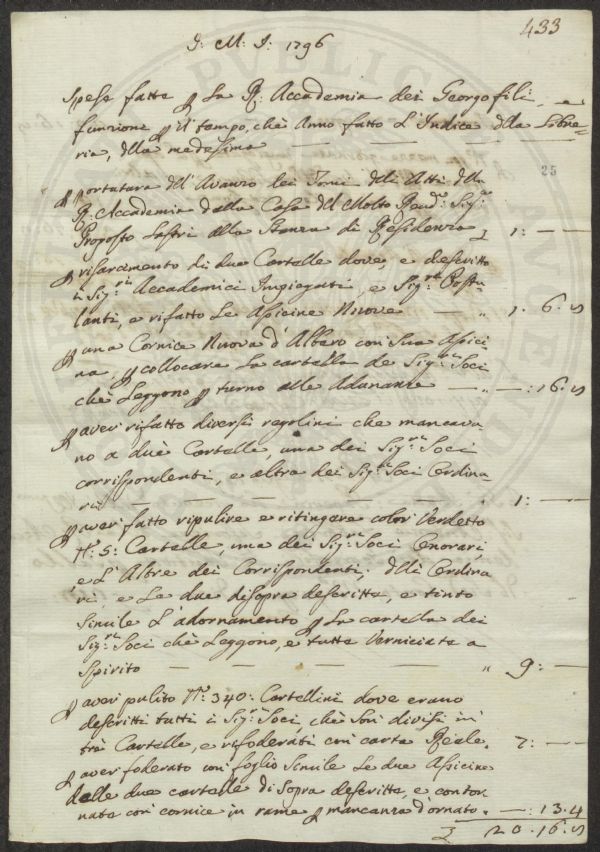 433
J: M: J: 1796
Spese fatte p La R: Accademia dei Georgofili, e
funzione p il tempo, che Anno fatto L'Indice dlla Libre=
ria, dlla medesima — — — —
25
p portatura dell'Avanzo dei Tomi deli Atti dlla
R: Accademia dalla Casa del Molto Rend:o Sig:re
Proposto Lastri alla Stanza di Residenza £ 1: — —
p risarcimento di due Cartelle dove, e descritto
i Sig:ri Accademici Impiegati, e Sig:ri Postu=
lanti, e rifatto Le Apicine Nuove — " 1. 6. 8
p una Cornice Nuova d'Albero con Sua Apici=
na, p collocare La cartella de Sig:ri Soci
che Leggono p turno alle Adunanze — " —: 16. 8
p aver rifatto diversi regolini che mancava=
no a due Cartelle, una dei Sig:ri Soci
corrispondenti, e altra dei Sig:ri Soci Ordina=
ri — — — — — " 1: — —
p aver fatto ripulire e ritingere color Verdetto
N:o 5: Cartelle, una dei Sig:ri Soci Onorari
e L'Altre dei Corrispondenti, deli Ordina=
ri, e Le due disopra descritte, e tinto
Simile L'adornamento p La cartella dei
Sig:ri Soci che Leggono, e tutte Verniciate a
Spirito — — — — " 9: —
p aver pulito N:o 340: Cartellini dove erano
descritti tutti i Sig:ri Soci, che son divisi in
tre Cartelle, e rifoderati con carta Reale. 7: — —
p aver foderato con foglio Simile Le due Apicine
delle due cartelle di Sopra descritte, e contor=
nate con cornice in rame p mancanza d'ornato. —: 13. 4
£ 20. 16. 8